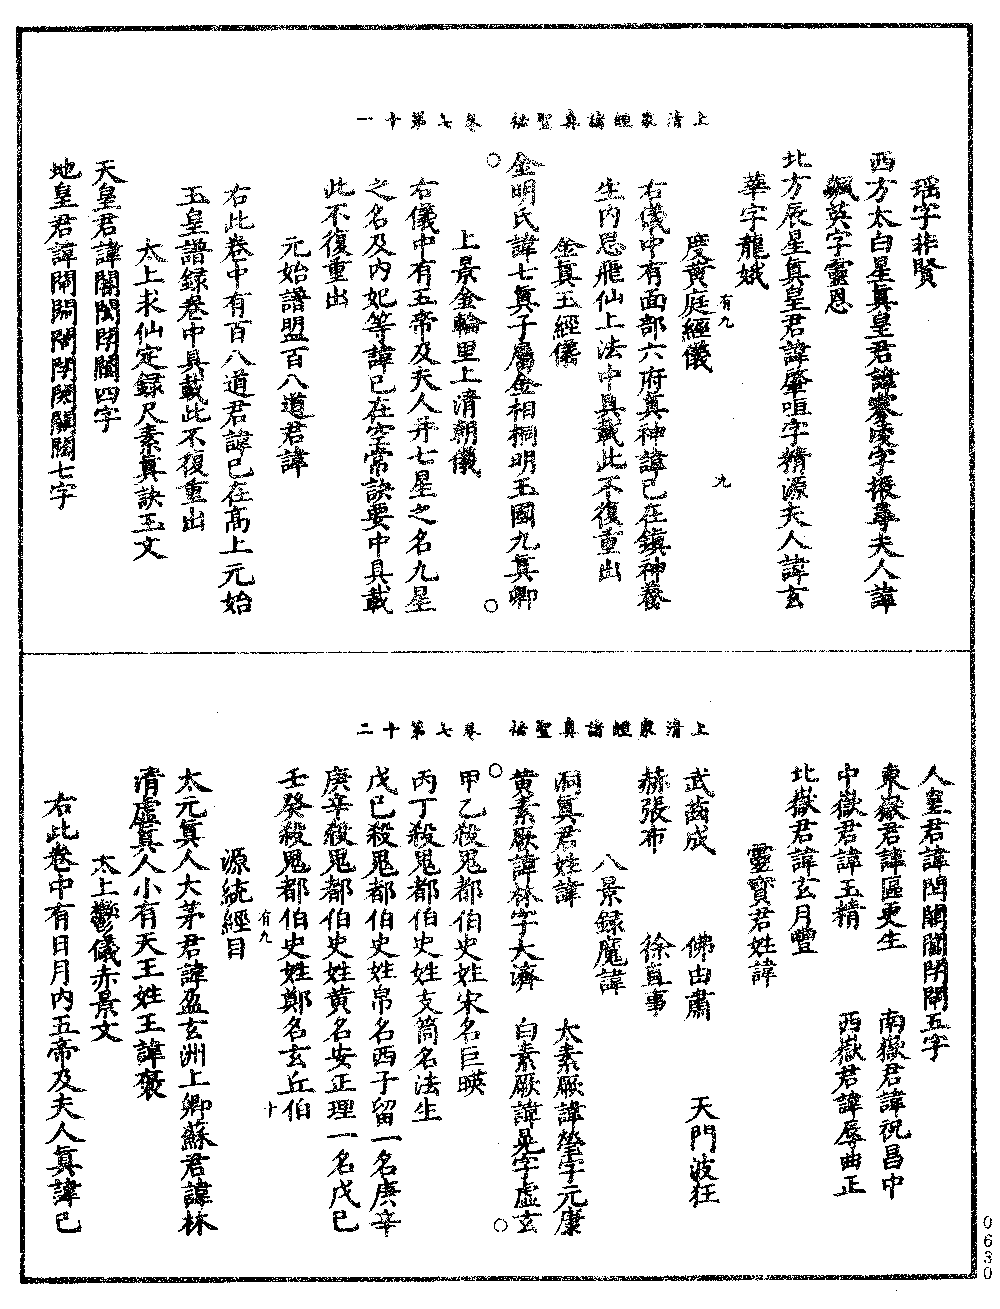 上清衆經諸真聖祕　卷七第十一
瑶字非賢
西方太白星真皇君諱寥凌字振尋夫人諱
飆英字靈恩
北方辰星真皇君諱肇咺字精源夫人諱玄
華字龍娥
度黄庭經儀
有九
九
右儀中有面部六府真神諱已在鎮神養
生内思飛仙上法中具載此不復重出
金真玉經儀
○金明氏諱七真子屬金相桐明玉國九真卿○
上景金輪里上清朝儀
右儀中有五帝及天人并七星之名九星
之名及内妃等諱已在空常訣要中具載
此不復重出
元始譜盟百八道君諱
右此卷中有百八道君諱已在高上元始
玉皇譜録卷中具載此不復重出
太上求仙定録尺素真訣玉文
天皇君諱闇閔閉闔四字
地皇君諱七字
上清衆經諸真聖祕　卷七第十二
人皇君諱五字
東嶽君諱區更生　南嶽君諱祝昌中
中嶽君諱玉精　西嶽君諱辱曲正
北嶽君諱玄月豐
靈寶君姓諱
武齒成　佛由肅　天門波狂
赫張布　徐直事
八景録魔諱
洞真君姓諱　太素厥諱瑩字元康
○黄素厥諱林字大濟　白素厥諱晃字虚玄○
甲乙殺鬼都伯史姓宋名巨暎
丙丁殺鬼都伯史姓支篙名法生
戊己殺鬼都伯史姓帛名西子留一名庚辛
庚辛殺鬼都伯史姓黄名安正理一名戊己
壬癸殺鬼都伯史姓鄭名玄丘伯
有九
十
源統經目
太元真人大茅君諱盈玄洲上卿蘇君諱林
清虚真人小有天王姓王諱褒
太上鬱儀赤景文
右此卷中有日月内五帝及夫人真諱已
0630